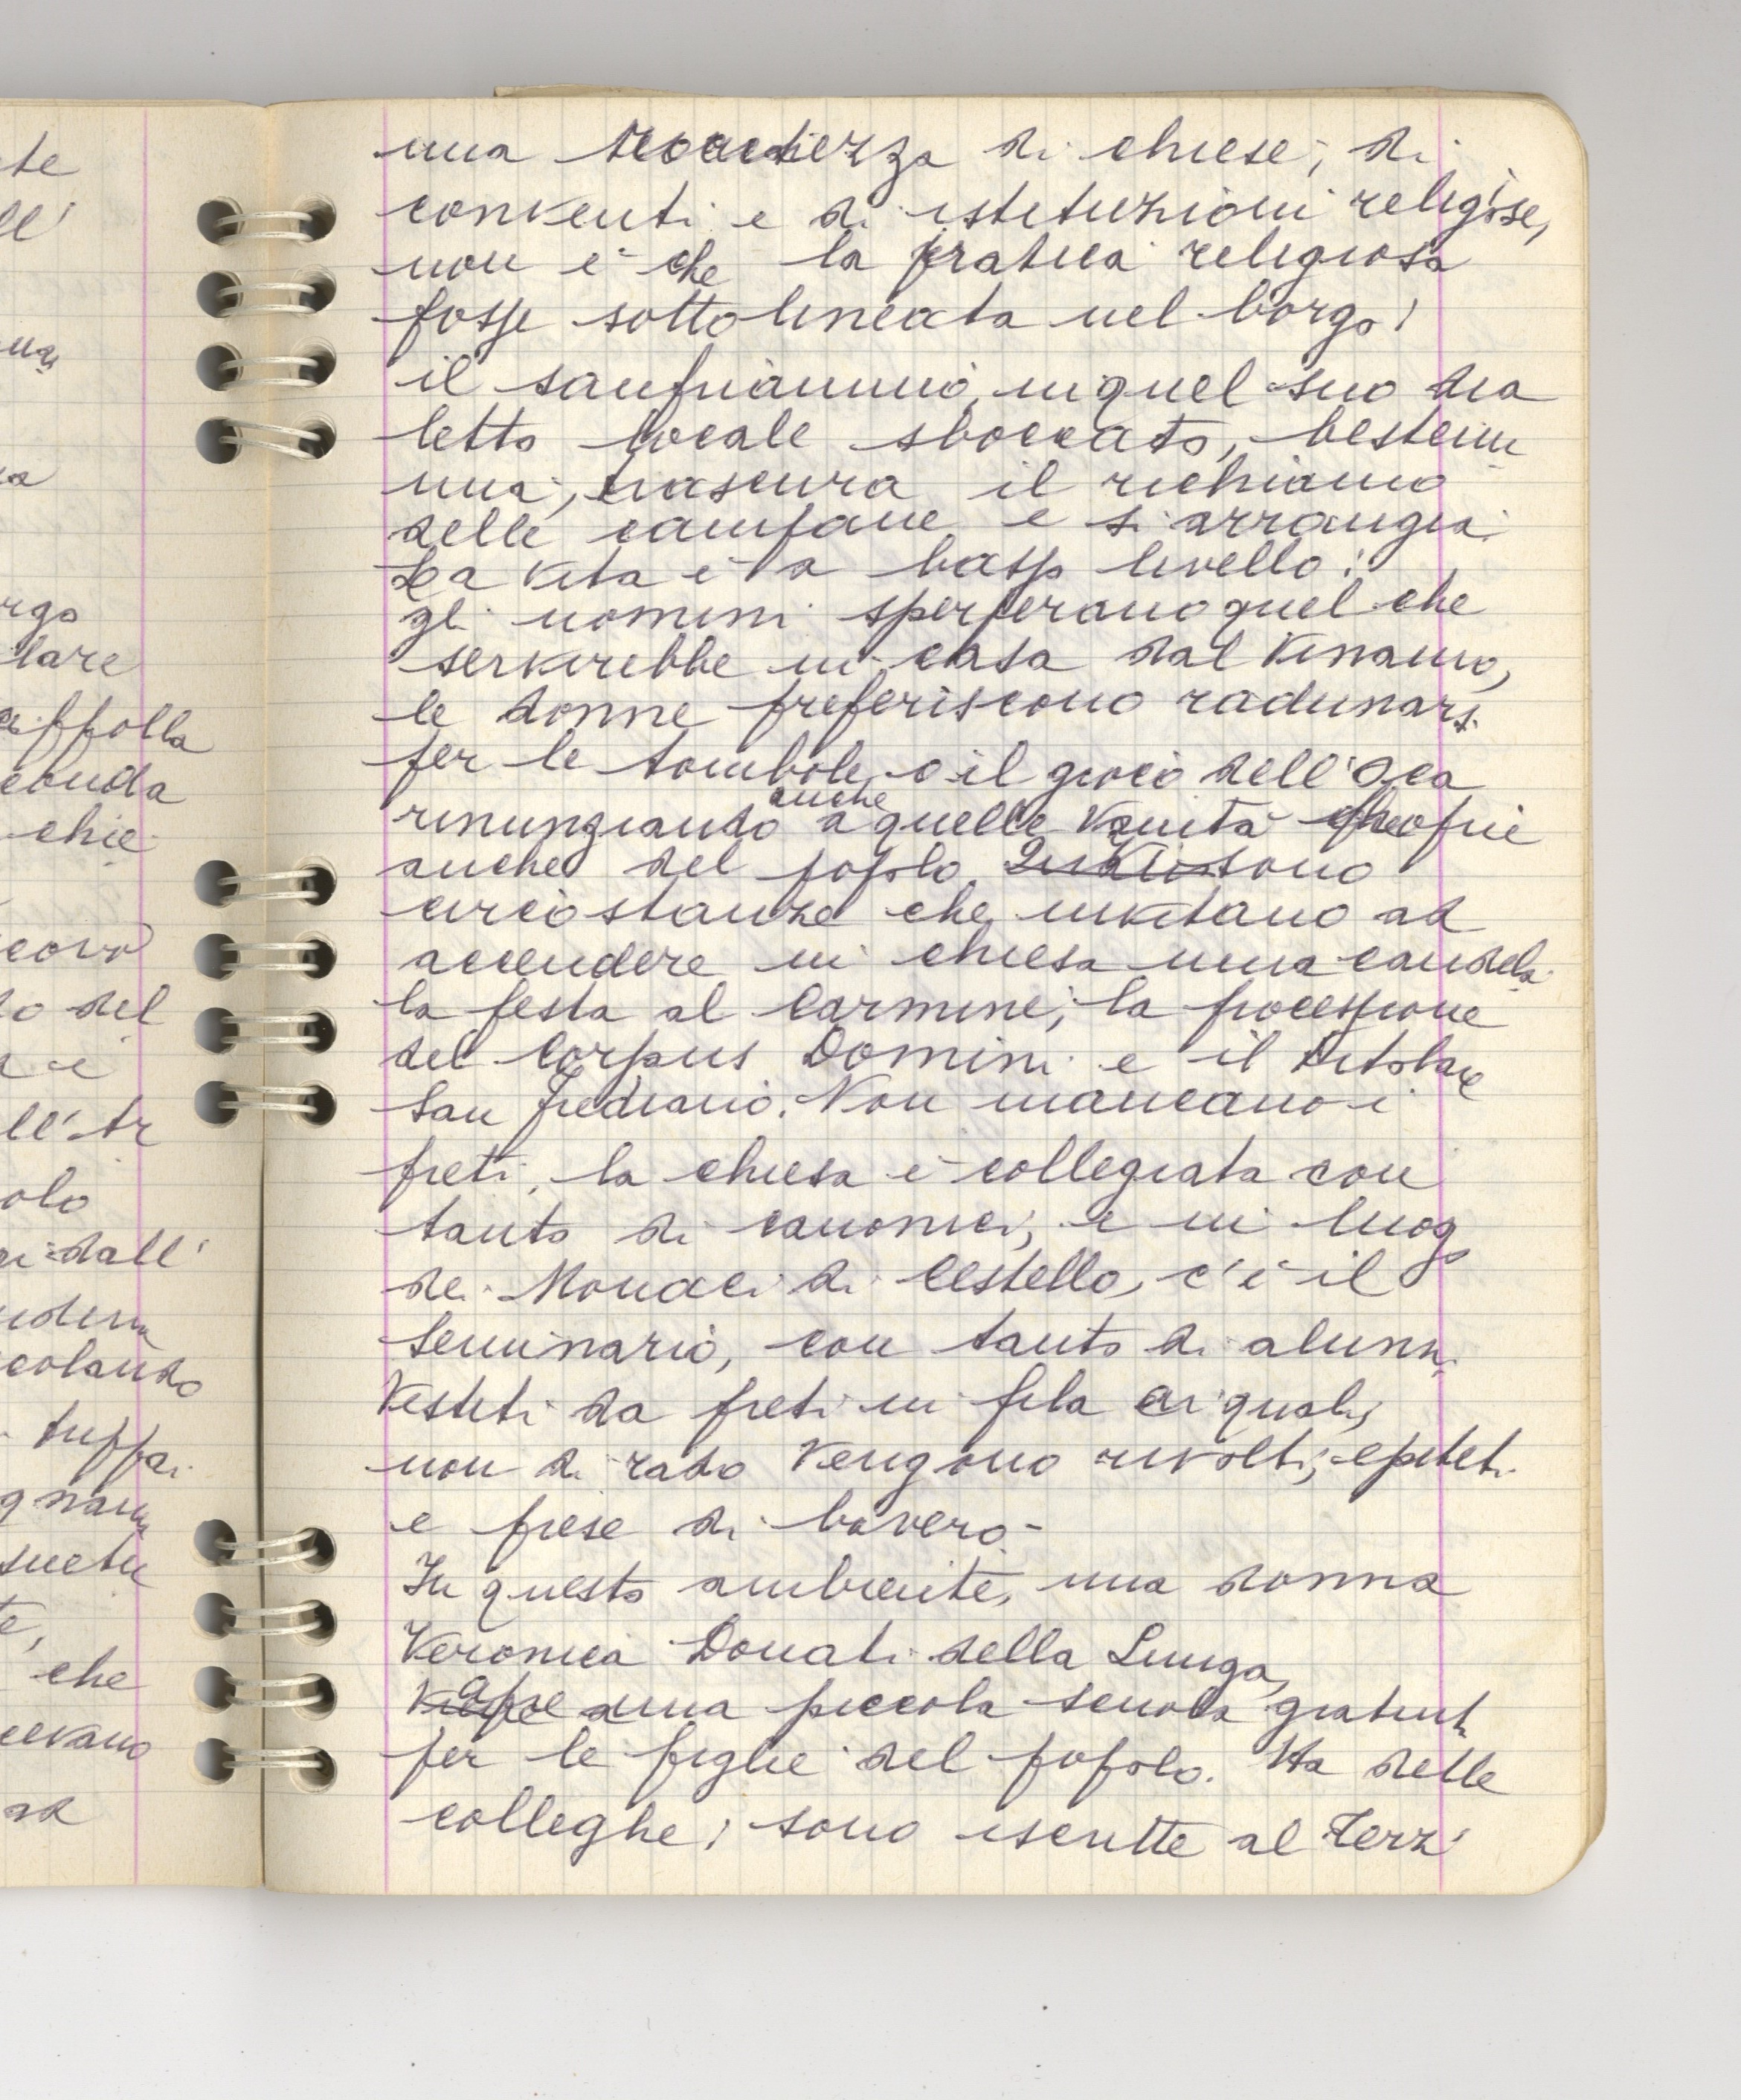 te
ll'
na
rgo
lare
ffolla
conda
chie
to del
è
ll'Ar
olo
dall'
colando
tuffa
che
ad
una di chiese, di
conventi e di istituzioni religiose,
non è che la pratica religiosa
fosse sottolineata nel borgo:
il sanfrianino, in quel suo dia
letto locale sboccato, bestem
mia, trascura il richiamo
delle campane e si arrangia.
La vita è a basso livello:
gli uomini sperperano quel che
servirebbe in casa dal vinaino,
le donne preferiscono radunarsi
per le tombole o il gioco dell'Oca
anche
rinunziando a quelle vanità proprie
anche del popolo. sono
circostanze che invitano ad
accendere in chiesa una candela
la festa al Carmine, la processione
del Corpus Domini e il titolare
San Frediano. Non mancano i
preti, la chiesa è collegiata con
tanto di canonici, e in luogo
dei Monaci di Cestello, c'è il
Seminario, con tanto di alunni
vestiti da preti in fila ai quali,
non di rado vengono rivolti, epiteti
e prese di bavero-
In questo ambiente, una donna
Veronica Donati della Lunga,
apre una piccola scuola gratuita
per le figlie del popolo. Ha delle
colleghe; sono iscritte al Terz'